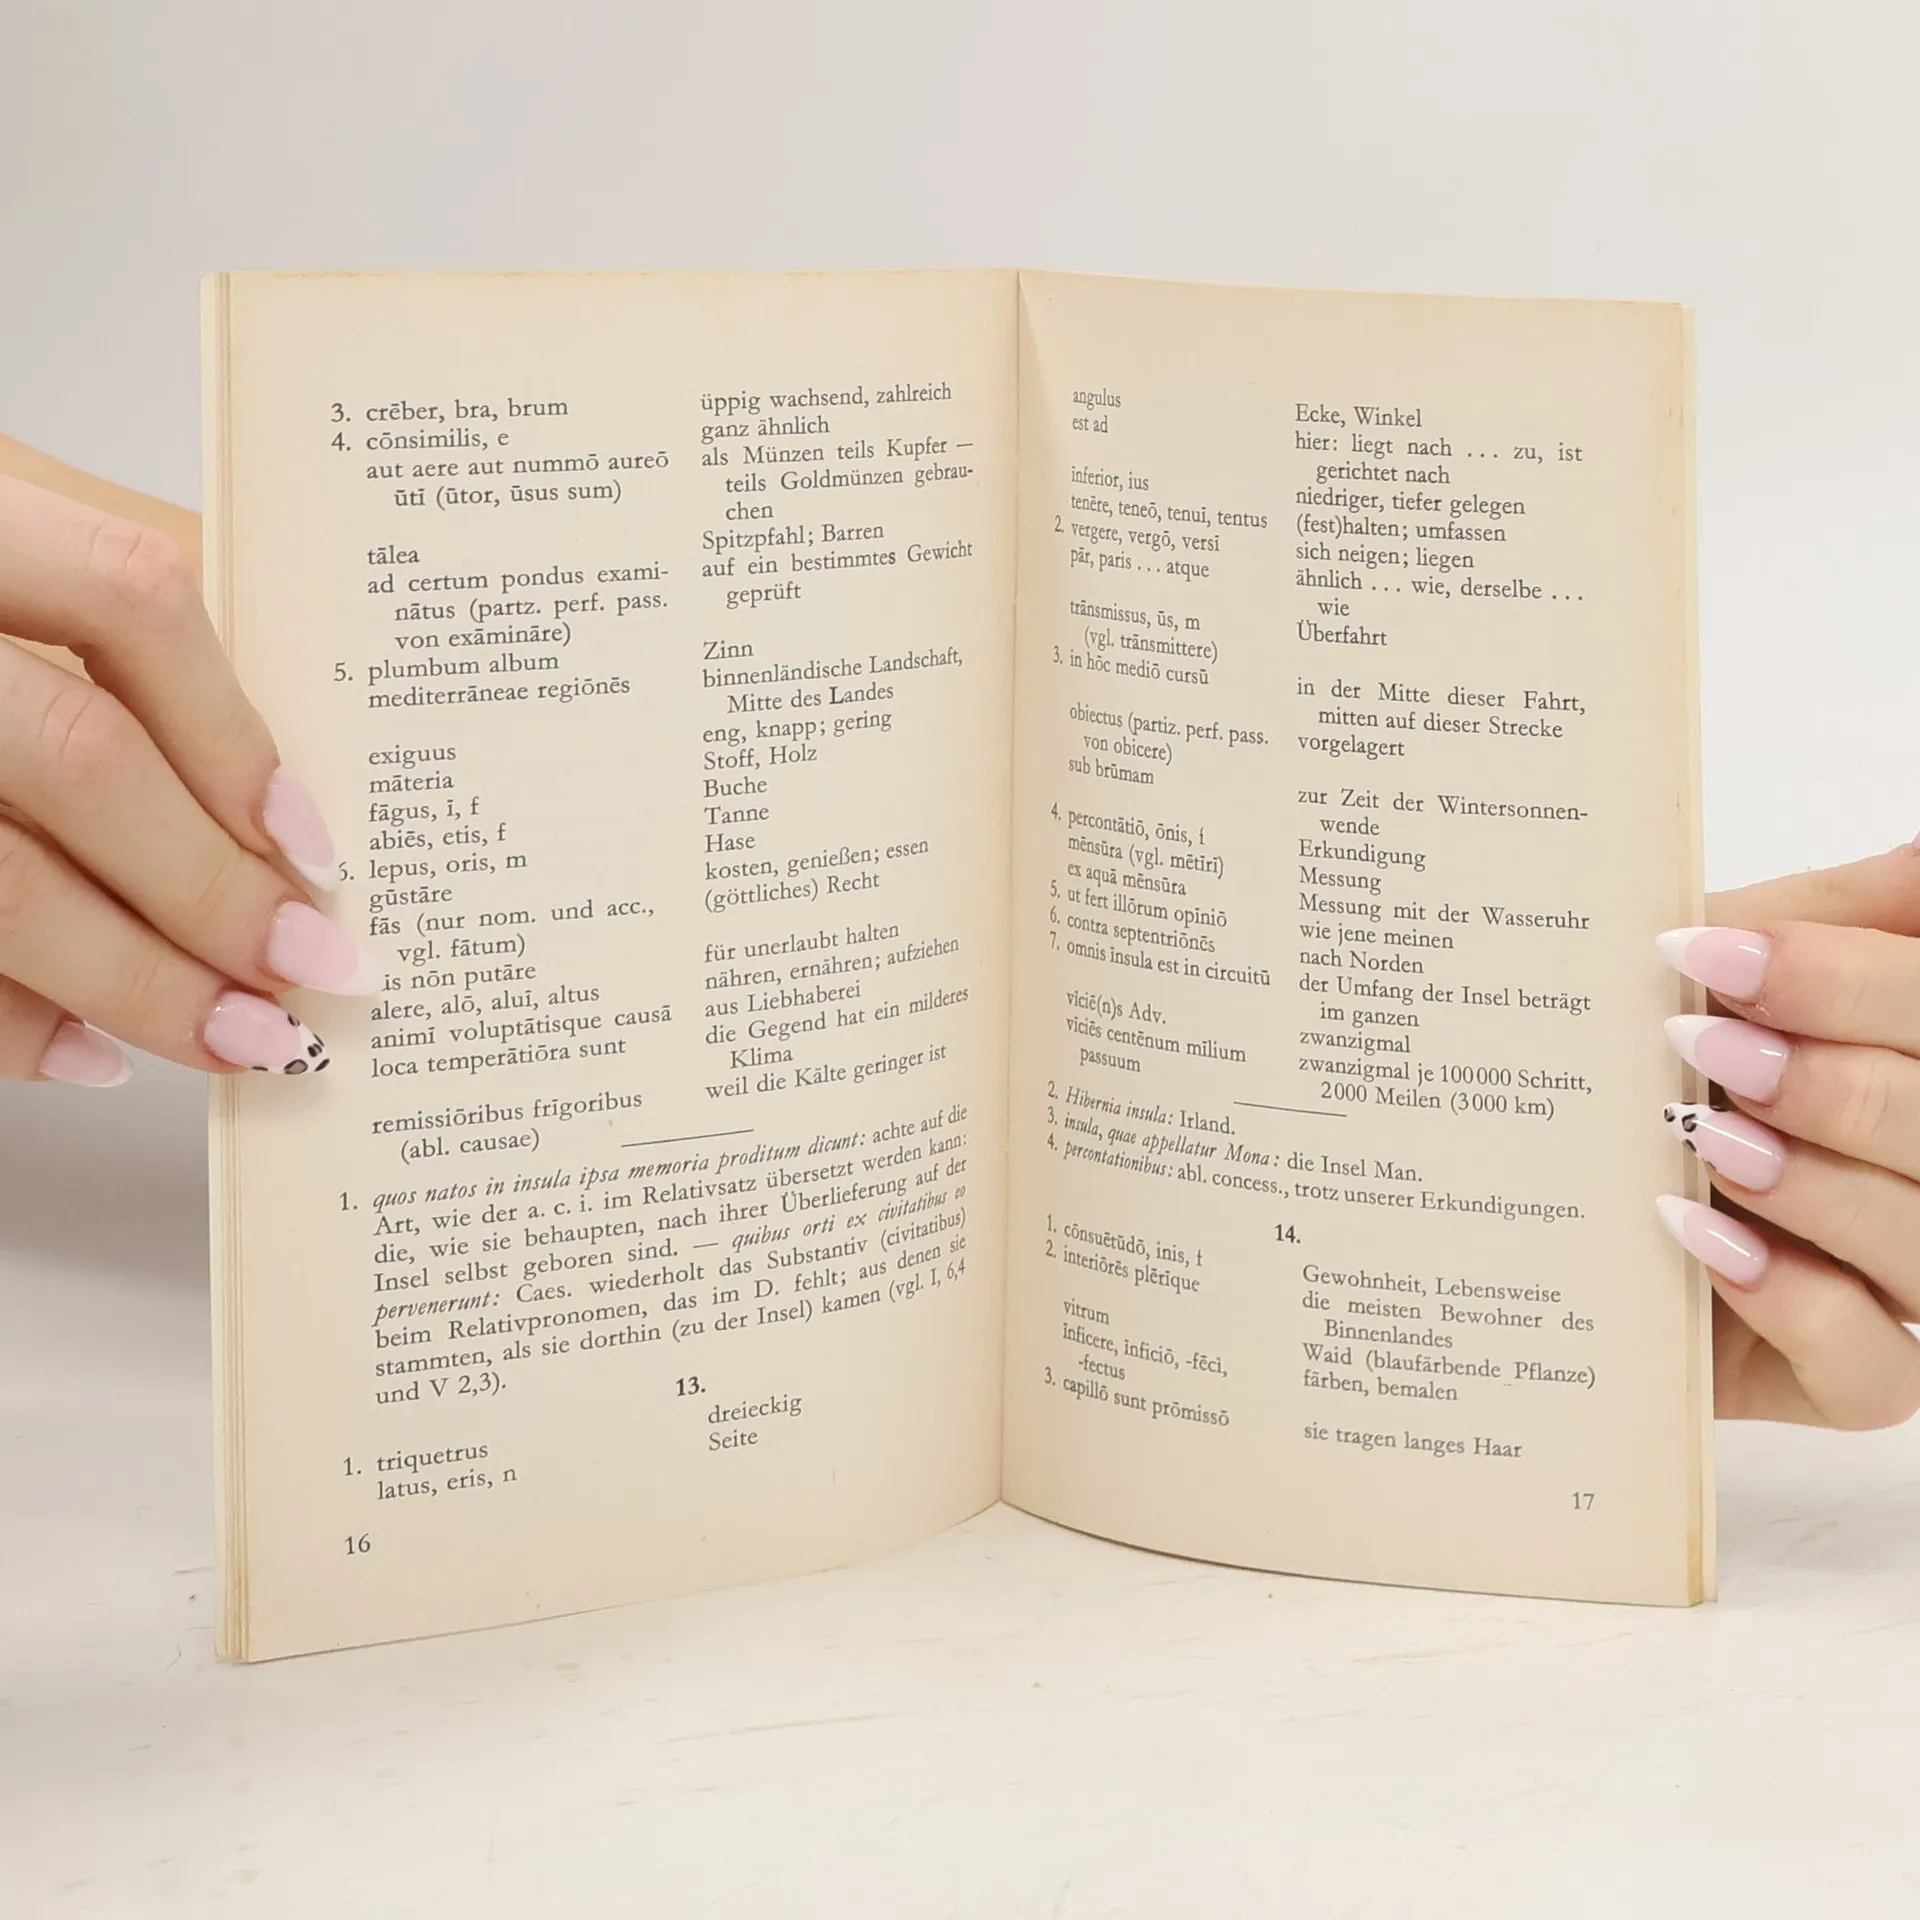 3. crēber, bra, brum üppig wachsend, zahlreich
4. cōnsimilis, e ganz ähnlich
aut aere aut nummō aureō als Münzen teils Kupfer —
ūtī (ūtor, ūsus sum) teils Goldmünzen gebrau-
chen
tālea Spitzpfahl; Barren
ad certum pondus exami- auf ein bestimmtes Gewicht
nātus (partz. perf. pass. geprüft
von exāmināre)
5. plumbum album Zinn
mediterrāneae regiōnēs binnenländische Landschaft,
Mitte des Landes
exiguus eng, knapp; gering
māteria Stoff, Holz
fāgus, ī, f Buche
abiēs, etis, f Tanne
6. lepus, oris, m Hase
gūstāre kosten, genießen; essen
fās (nur nom. und acc., (göttliches) Recht
vgl. fātum)
nōn putāre für unerlaubt halten
alere, alō, aluī, altus nähren, ernähren; aufziehen
animī voluptātisque causā aus Liebhaberei
loca temperātiōra sunt die Gegend hat ein milderes
Klima
remissiōribus frīgoribus weil die Kälte geringer ist
(abl. causae)
1. quos natos in insula ipsa memoria proditum dicunt: achte auf die
Art, wie der a. c. i. im Relativsatz übersetzt werden kann:
die, wie sie behaupten, nach ihrer Überlieferung auf der
Insel selbst geboren sind. — quibus orti ex civitatibus eo
pervenerunt: Caes. wiederholt das Substantiv (civitatibus)
beim Relativpronomen, das im D. fehlt; aus denen sie
stammten, als sie dorthin (zu der Insel) kamen (vgl. I, 6,4
und V 2,3).
13.
1. triquetrus dreieckig
latus, eris, n Seite
16
angulus Ecke, Winkel
est ad hier: liegt nach ... zu, ist
gerichtet nach
īnferior, ius niedriger, tiefer gelegen
tenēre, teneō, tenuī, tentus (fest)halten; umfassen
2. vergere, vergō, versī sich neigen; liegen
pār, paris ... atque ähnlich ... wie, derselbe ...
wie
trānsmissus, ūs, m Überfahrt
(vgl. trānsmittere)
3. in hōc mediō cursū in der Mitte dieser Fahrt,
mitten auf dieser Strecke
obiectus (partiz. perf. pass. vorgelagert
von obicere)
sub brūmam zur Zeit der Wintersonnen-
wende
4. percontātiō, ōnis, f Erkundigung
mēnsūra (vgl. mētīrī) Messung
ex aquā mēnsūra Messung mit der Wasseruhr
5. ut fert illōrum opīniō wie jene meinen
6. contra septentriōnēs nach Norden
7. omnis insula est in circuitū der Umfang der Insel beträgt
im ganzen
viciē(n)s Adv. zwanzigmal
viciēs centēnum mīlium zwanzigmal je 100 000 Schritt,
passuum 2000 Meilen (3000 km)
2. Hibernia insula: Irland.
3. insula, quae appellatur Mona: die Insel Man.
4. percontationibus: abl. concess., trotz unserer Erkundigungen.
14.
1. cōnsuētūdō, inis, f Gewohnheit, Lebensweise
2. interiōrēs plērīque die meisten Bewohner des
Binnenlandes
vitrum Waid (blaufärbende Pflanze)
īnficere, īnficiō, -fēcī, färben, bemalen
-fectus
3. capillō sunt prōmissō sie tragen langes Haar
17